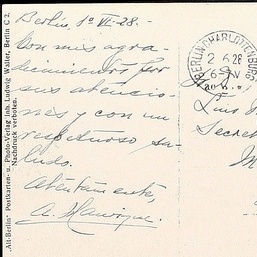 Berlin, 1º VI-28.-
Con mis agra-
decimientos por
sus atencio-
nes y con un
respetuoso sa-
ludo.
Atentamente,
A. Manrique.
"Alt-Berlin" Postkarten- u. Photo-Verlag inh. Ludwig Walter, Berlin C 2.
Nachdruck verboten.
BERLIN-CHARLOTTENBURG
2 6 28
Luis
Secret
M